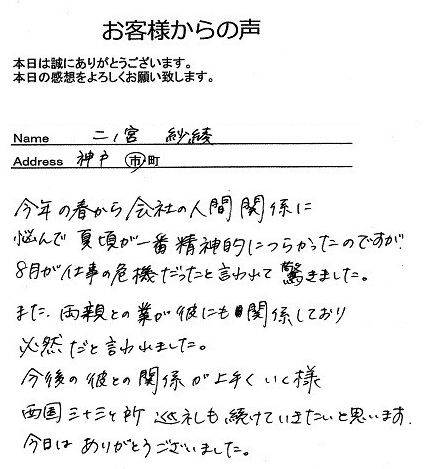 お客様からの声
本日は誠にありがとうございます。
本日の感想をよろしくお願い致します。
Name 二ノ宮 紗綾
Address 神戸 市町
今年の春から会社の人間関係に
悩んで夏頃が一番精神的につらかったのですが
8月が仕事の危機だったと言われて驚きました。
また、両親との業が彼にも関係しており
必然だと言われました。
今後の彼との関係が上手くいく様
西国三十三ヶ所巡礼も続けていきたいと思います。
今日はありがとうございました。